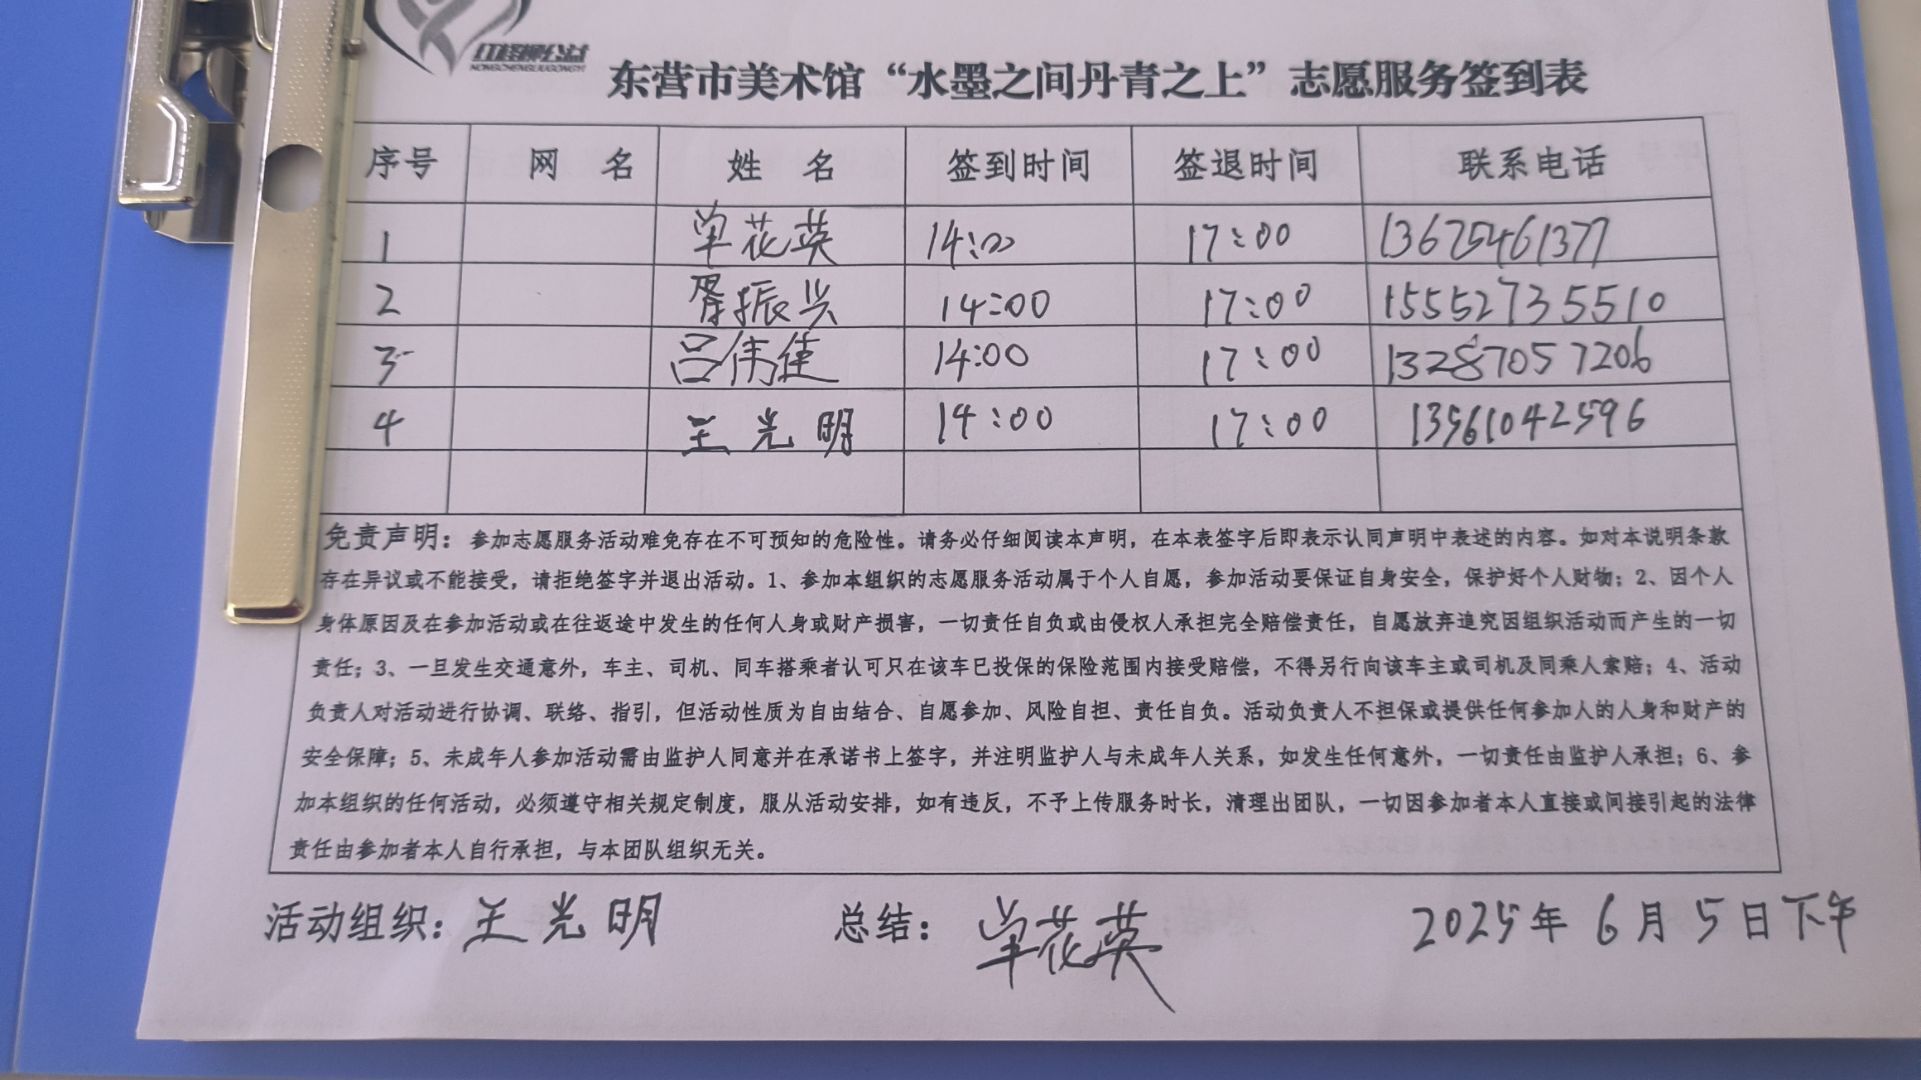 红柽柳公益
HONGCHENGLIUGONGYI
东营市美术馆“水墨之间丹青之上”志愿服务签到表
序号 网 名 姓 名 签到时间 签退时间 联系电话
1 单花英 14:00 17:00 13675461377
2 胥振兴 14:00 17:00 15552735510
3 吕伟佳 14:00 17:00 13287057206
4 王光明 14:00 17:00 13561042596
免责声明：参加志愿服务活动难免存在不可预知的危险性。请务必仔细阅读本声明，在本表签字后即表示认同声明中表述的内容。如对本说明条款
存在异议或不能接受，请拒绝签字并退出活动。1、参加本组织的志愿服务活动属于个人自愿，参加活动要保证自身安全，保护好个人财物；2、因个人
身体原因及在参加活动或在往返途中发生的任何人身或财产损害，一切责任自负或由侵权人承担完全赔偿责任，自愿放弃追究因组织活动而产生的一切
责任；3、一旦发生交通意外，车主、司机、同车搭乘者认可只在该车已投保的保险范围内接受赔偿，不得另行向该车主或司机及同乘人索赔；4、活动
负责人对活动进行协调、联络、指引，但活动性质为自由结合、自愿参加、风险自担、责任自负。活动负责人不担保或提供任何参加人的人身和财产的
安全保障；5、未成年人参加活动需由监护人同意并在承诺书上签字，并注明监护人与未成年人关系，如发生任何意外，一切责任由监护人承担；6、参
加本组织的任何活动，必须遵守相关规定制度，服从活动安排，如有违反，不予上传服务时长，清理出团队，一切因参加者本人直接或间接引起的法律
责任由参加者本人自行承担，与本团队组织无关。
活动组织：王光明 总结：单花英 2025年 6月 5日下午